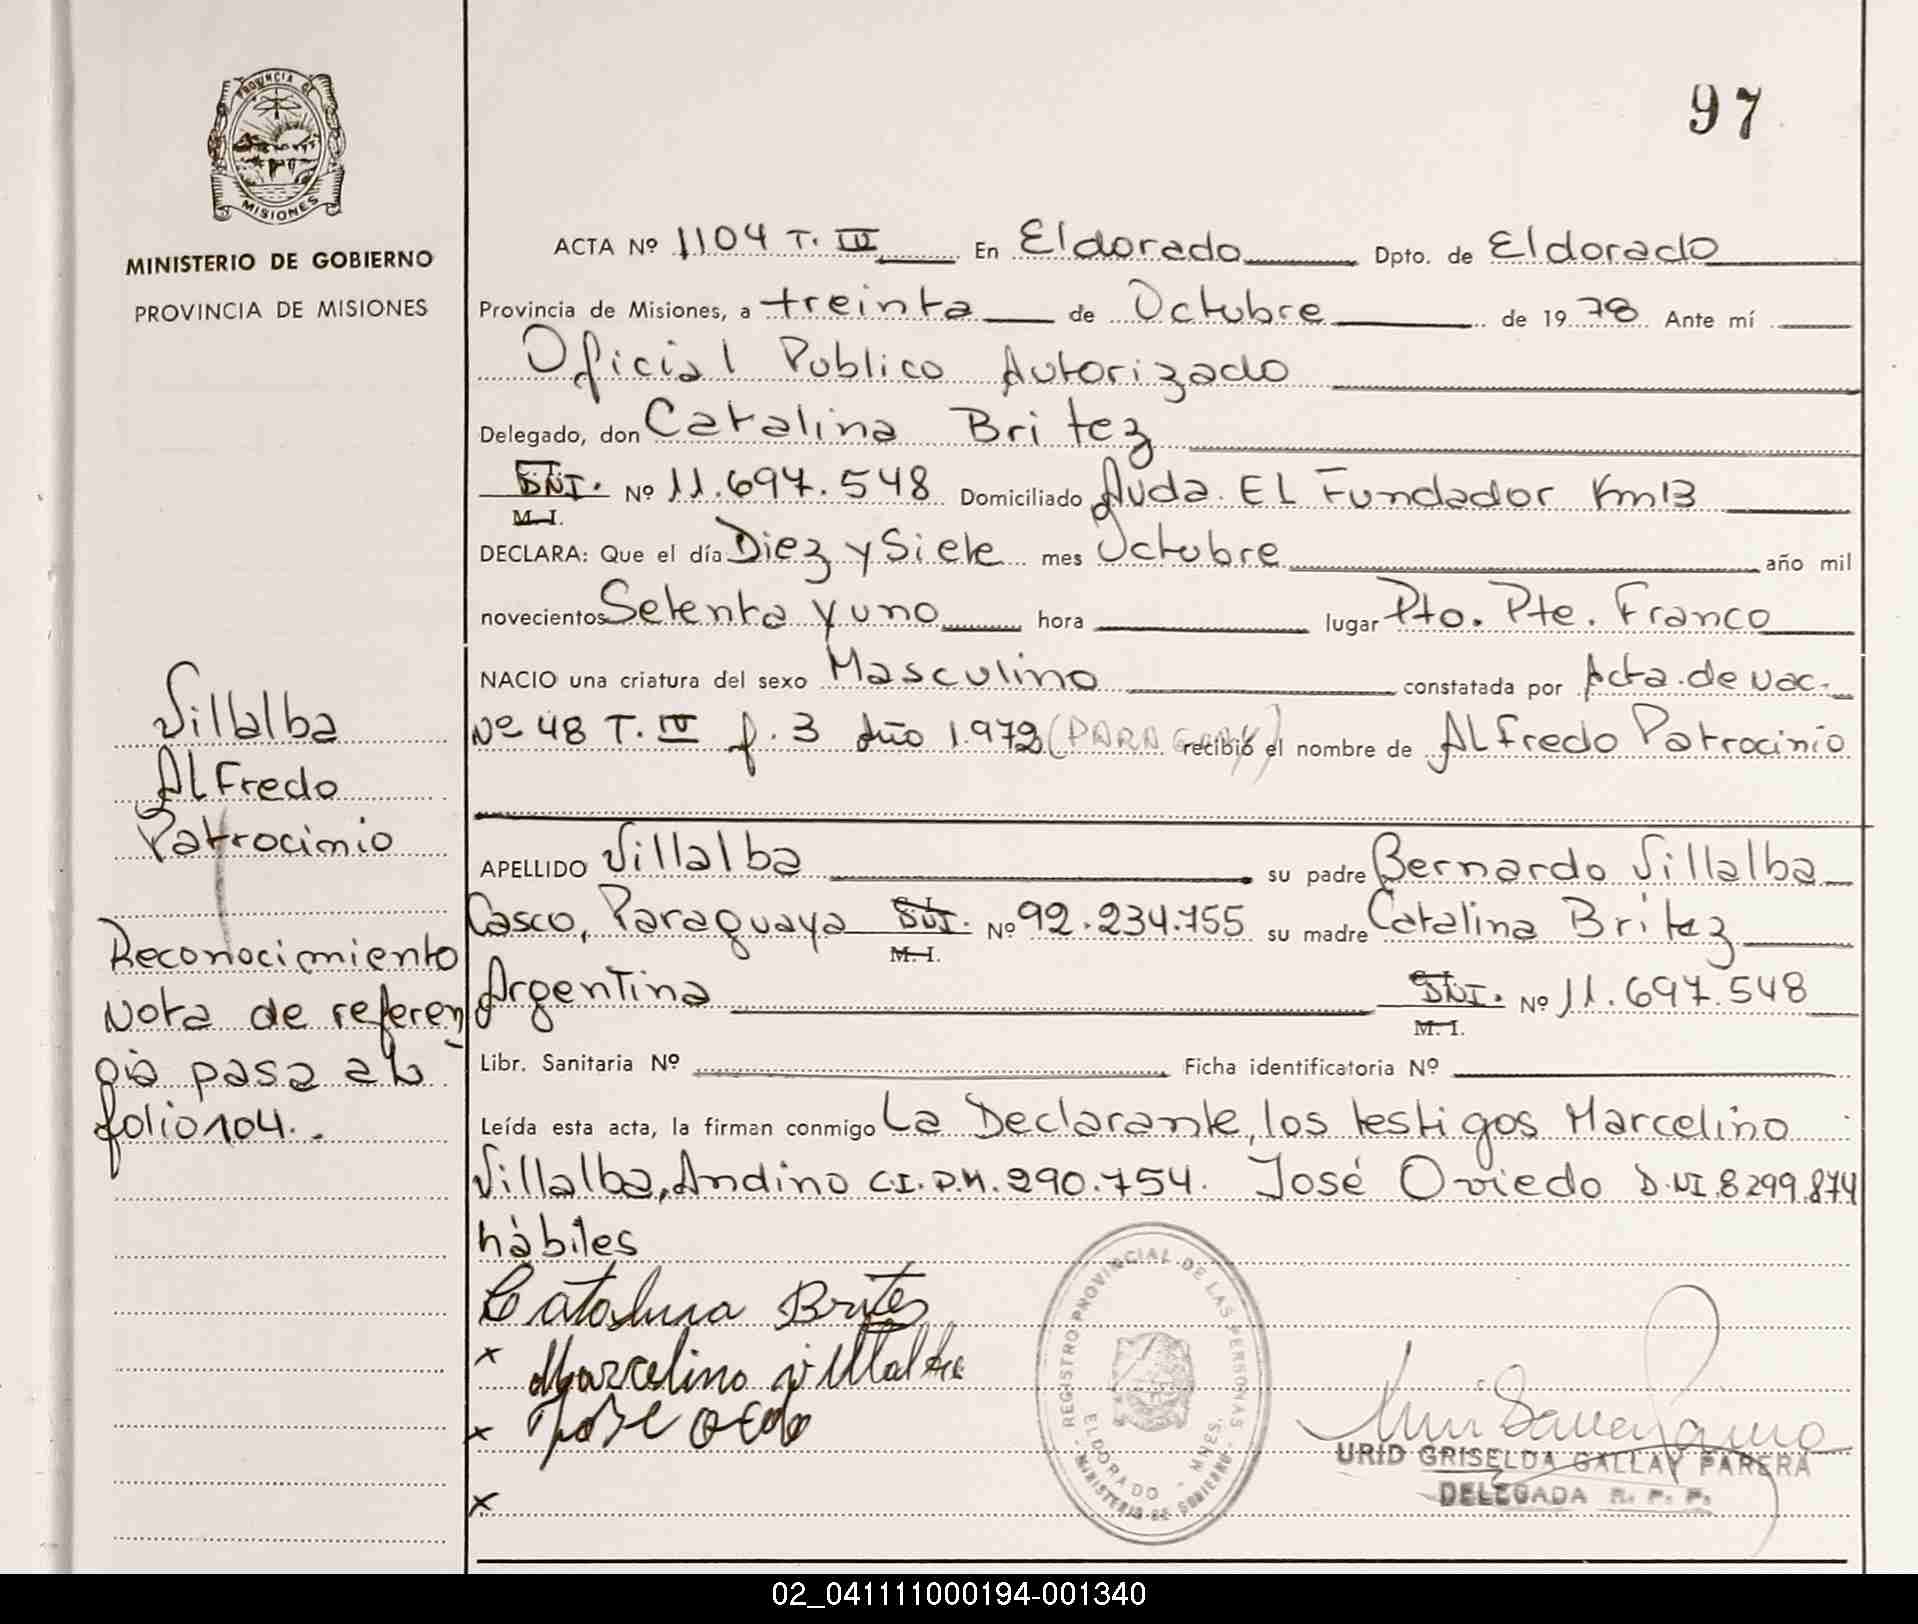 97
PROVINCIA DE
MISIONES
MINISTERIO DE GOBIERNO
PROVINCIA DE MISIONES
ACTA Nº 1104 T. III En Eldorado Dpto. de Eldorado
Provincia de Misiones, a treinta de Octubre de 1978 Ante mí
Oficial Publico Autorizado
Delegado, don Catalina Britez
DNI. Nº 11.697.548 Domiciliado Avda. EL Fundador Km 13
M.I.
DECLARA: Que el día Diez y Siete mes Octubre año mil
novecientos Setenta y uno hora lugar Pto. Pte. Franco
NACIO una criatura del sexo Masculino constatada por Acta de nac.
Nº 48 T. IV f. 3 Año 1.972 (PARAGUAY) recibió el nombre de ALfredo Patrocinio
APELLIDO Villalba su padre Bernardo Villalba
Casco, Paraguaya DNI. Nº 92.234.755 su madre Catalina Britez
M.I.
Argentina DNI. Nº 11.697.548
M.I.
Libr. Sanitaria Nº Ficha identificatoria Nº
Leída esta acta, la firman conmigo La Declarante, los testigos Marcelino
Villalba, Andino C.I.P.M. 290.754. José Oviedo D.NI 8299.874
hàbiles
Villalba
ALfredo
Patrocinio
Reconocimiento
Nota de referen
cia pasa al
folio 104..
Catalina Brites
x Marcelino villalba
x Jose
x
REGISTRO PROVINCIAL DE LAS PERSONAS
ELDORADO - MNES.
MINISTERIO DE GOBIERNO
URID GRISELDA GALLAY PARERA
DELEGADA R. P. P.
02_041111000194-001340